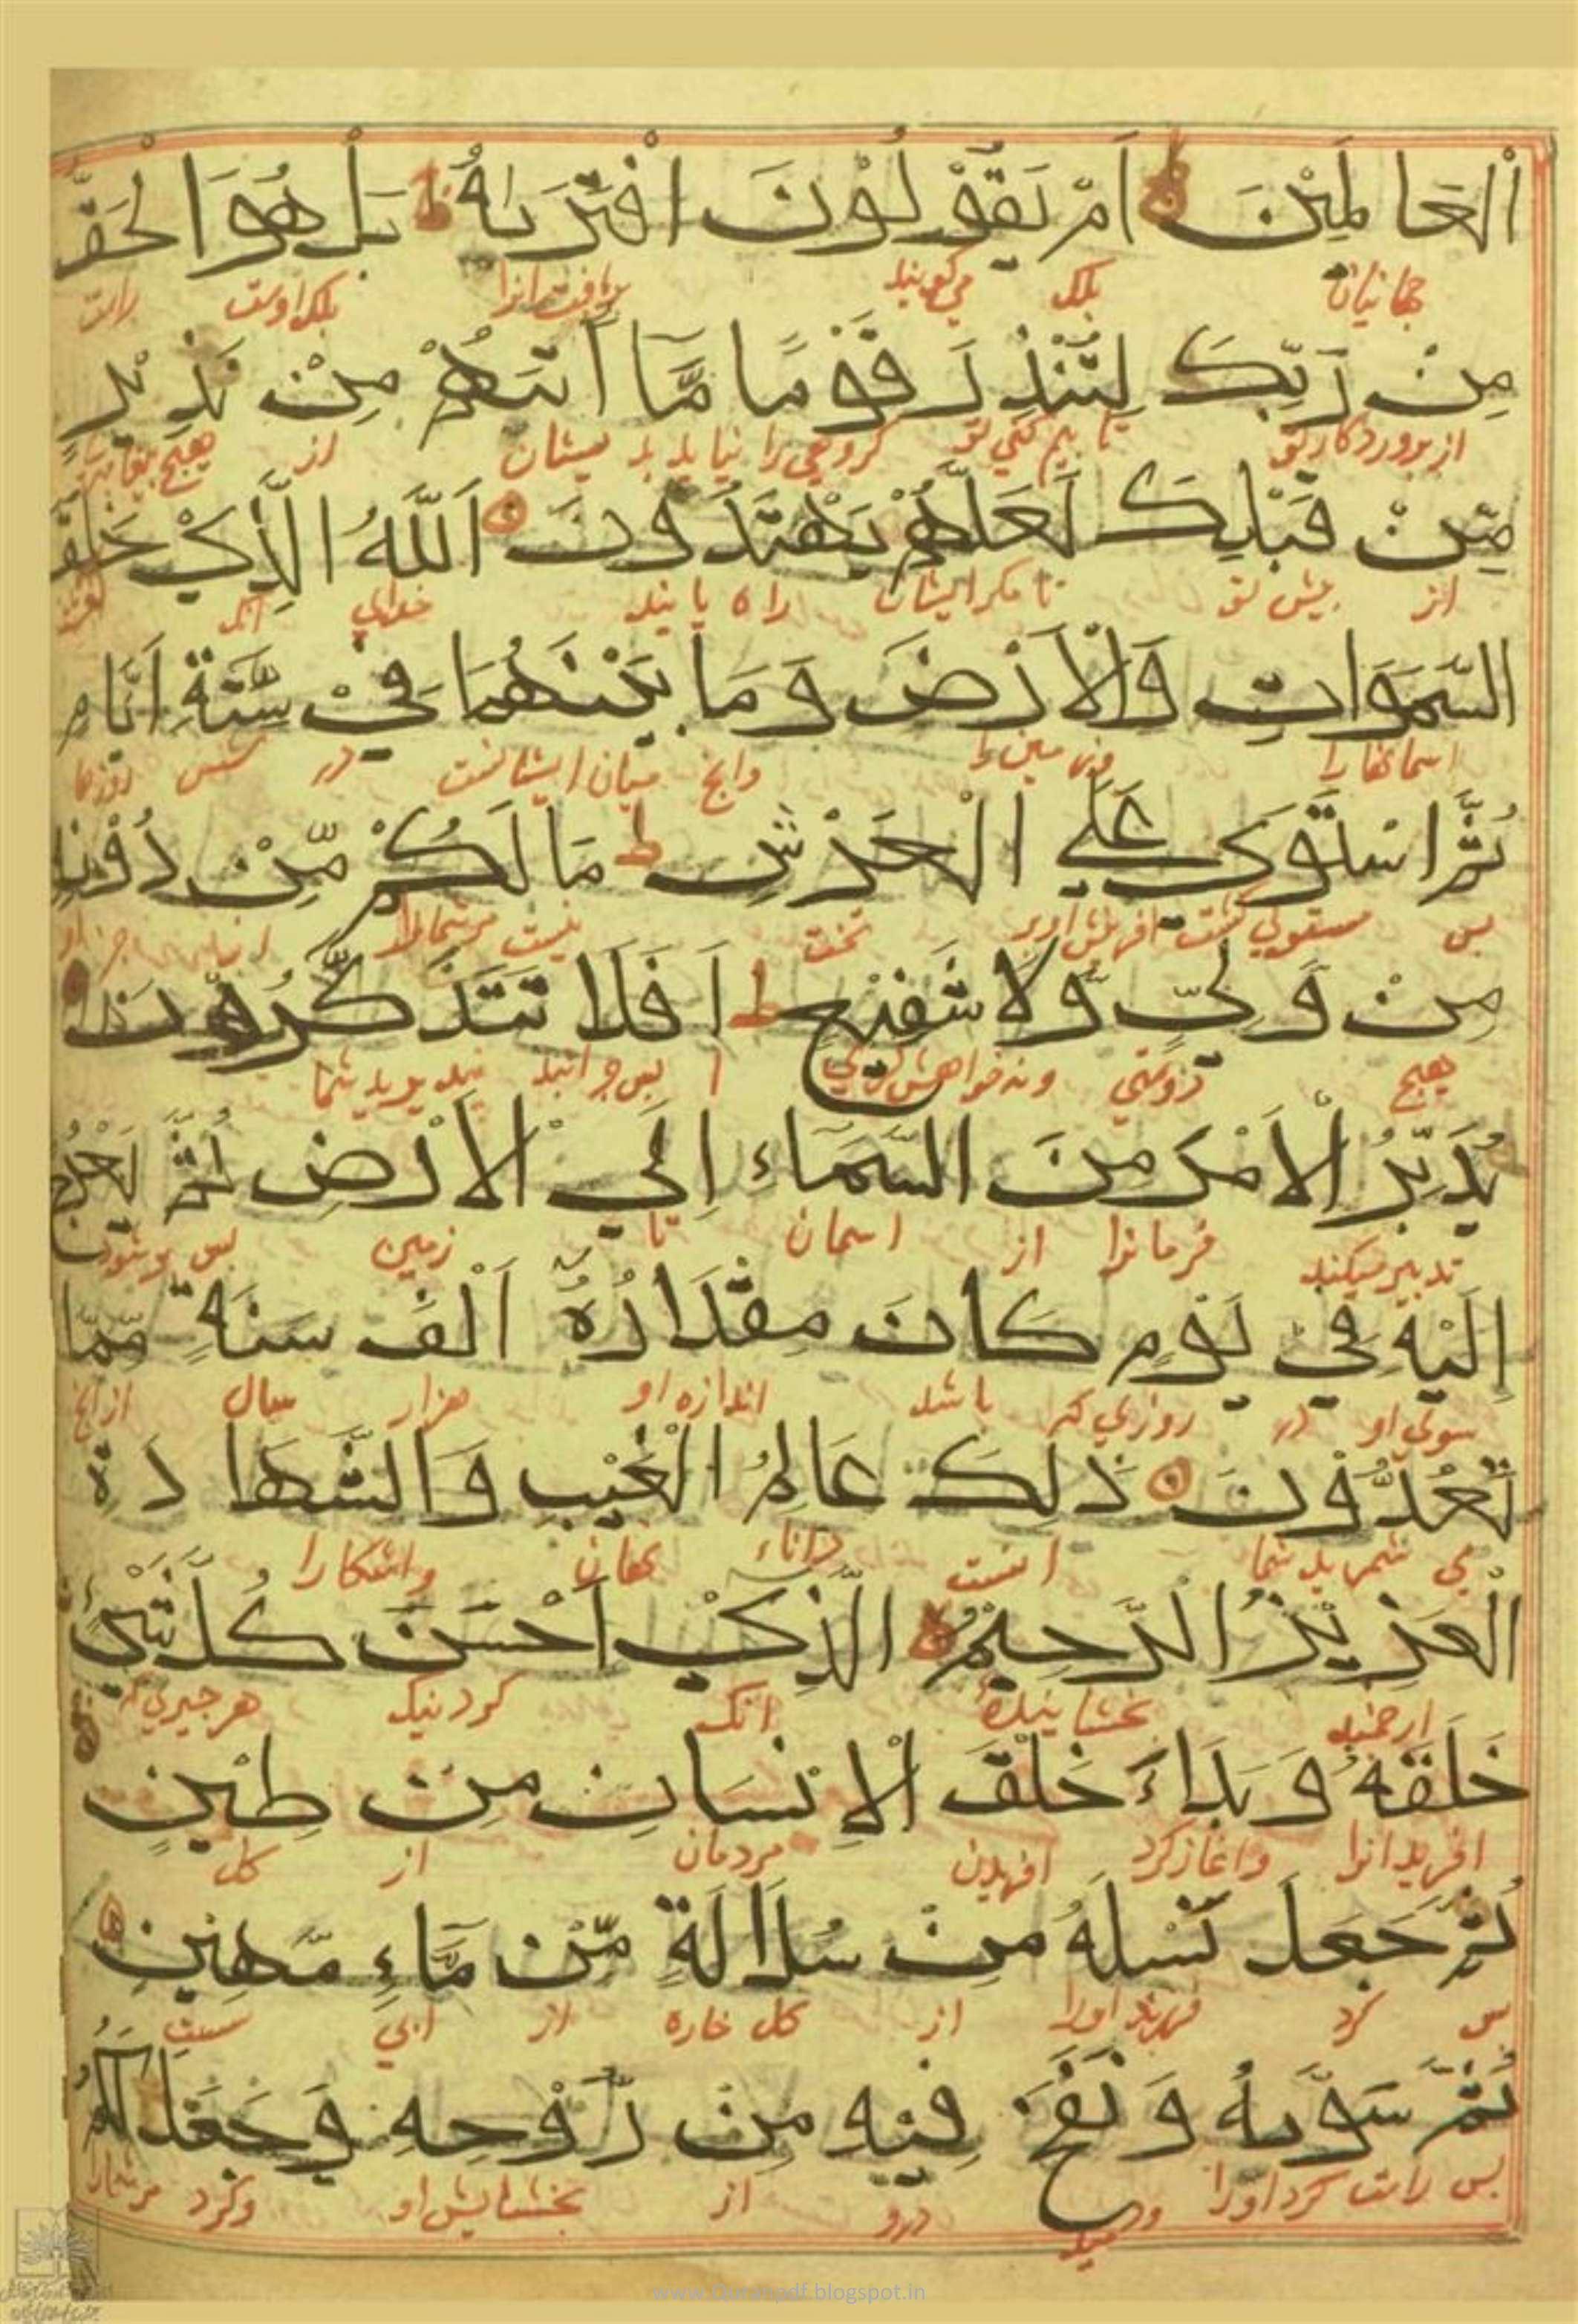 اَلْعَالَمِيْنَ اَمْ يَقُوْلُوْنَ افْتَرَىٰهُ ط بَلْ هُوَ الْحَقُّ
جهانيان بلك مى كويند بلك اوست راست
مِنْ رَبِّكَ لِتُنْذِرَ قَوْمًا مَّا اَتٰىهُمْ مِنْ نَذِيْرٍ
از پروردكار تو تا بيم كنى تو كروهى را نيامد بديشان از هيچ
مِّنْ قَبْلِكَ لَعَلَّهُمْ يَهْتَدُوْنَ اَللّٰهُ الَّذِيْ خَلَقَ
از پيش تو تا مكر ايشان راه يابند خداى آنك
السَّمَوَاتِ وَالْاَرْضَ وَمَا بَيْنَهُمَا فِيْ سِتَّةِ اَيَّامٍ
اسمانها را وزمين را وانچ ميان ايشانست در شش روزها
ثُمَّ اسْتَوٰى عَلَى الْعَرْشِ ط مَا لَكُمْ مِّنْ دُوْنِهِ
پس مستولى كشت تخت نيست مر شمارا
مِنْ وَّلِيٍّ وَّلَا شَفِيْعٍ ط اَفَلَا تَتَذَكَّرُوْنَ
هيچ دوستى ونه خواهش كرى ا پس چرا
يُدَبِّرُ الْاَمْرَ مِنَ السَّمَاءِ اِلَى الْاَرْضِ ثُمَّ يَعْرُجُ
تدبير ميكند فرمانرا از اسمان تا زمين پس
اِلَيْهِ فِيْ يَوْمٍ كَانَ مِقْدَارُهٗ اَلْفَ سَنَةٍ مِّمَّا
سوى او در روزى كه باشد اندازه او هزار سال ازانچ
تَعُدُّوْنَ ذٰلِكَ عَالِمُ الْغَيْبِ وَالشَّهَادَةِ
مى شمريد شما انست داناء نهان واشكارا
الْعَزِيْزُ الرَّحِيْمُ الَّذِيْ اَحْسَنَ كُلَّ شَيْءٍ
ارجمند بخشاينده انك كرد نيك هر چيزى
خَلَقَهُ وَبَدَاءَ خَلْقَ الْاِنْسَانِ مِنْ طِيْنٍ
افريد انرا واغاز كرد افريدن مردمان از كل
ثُمَّ جَعَلَ نَسْلَهُ مِنْ سُلَالَةٍ مِّنْ مَّاءٍ مَّهِيْنٍ
پس كرد فرزند اورا از كل خاره از ابى سست
ثُمَّ سَوّٰىهُ وَنَفَخَ فِيْهِ مِنْ رُّوْحِهِ وَجَعَلَ لَكُمُ
پس راست كرد اورا درو از بخشايش او وكرد مر شمارا
www.Quranpdf.blogspot.in